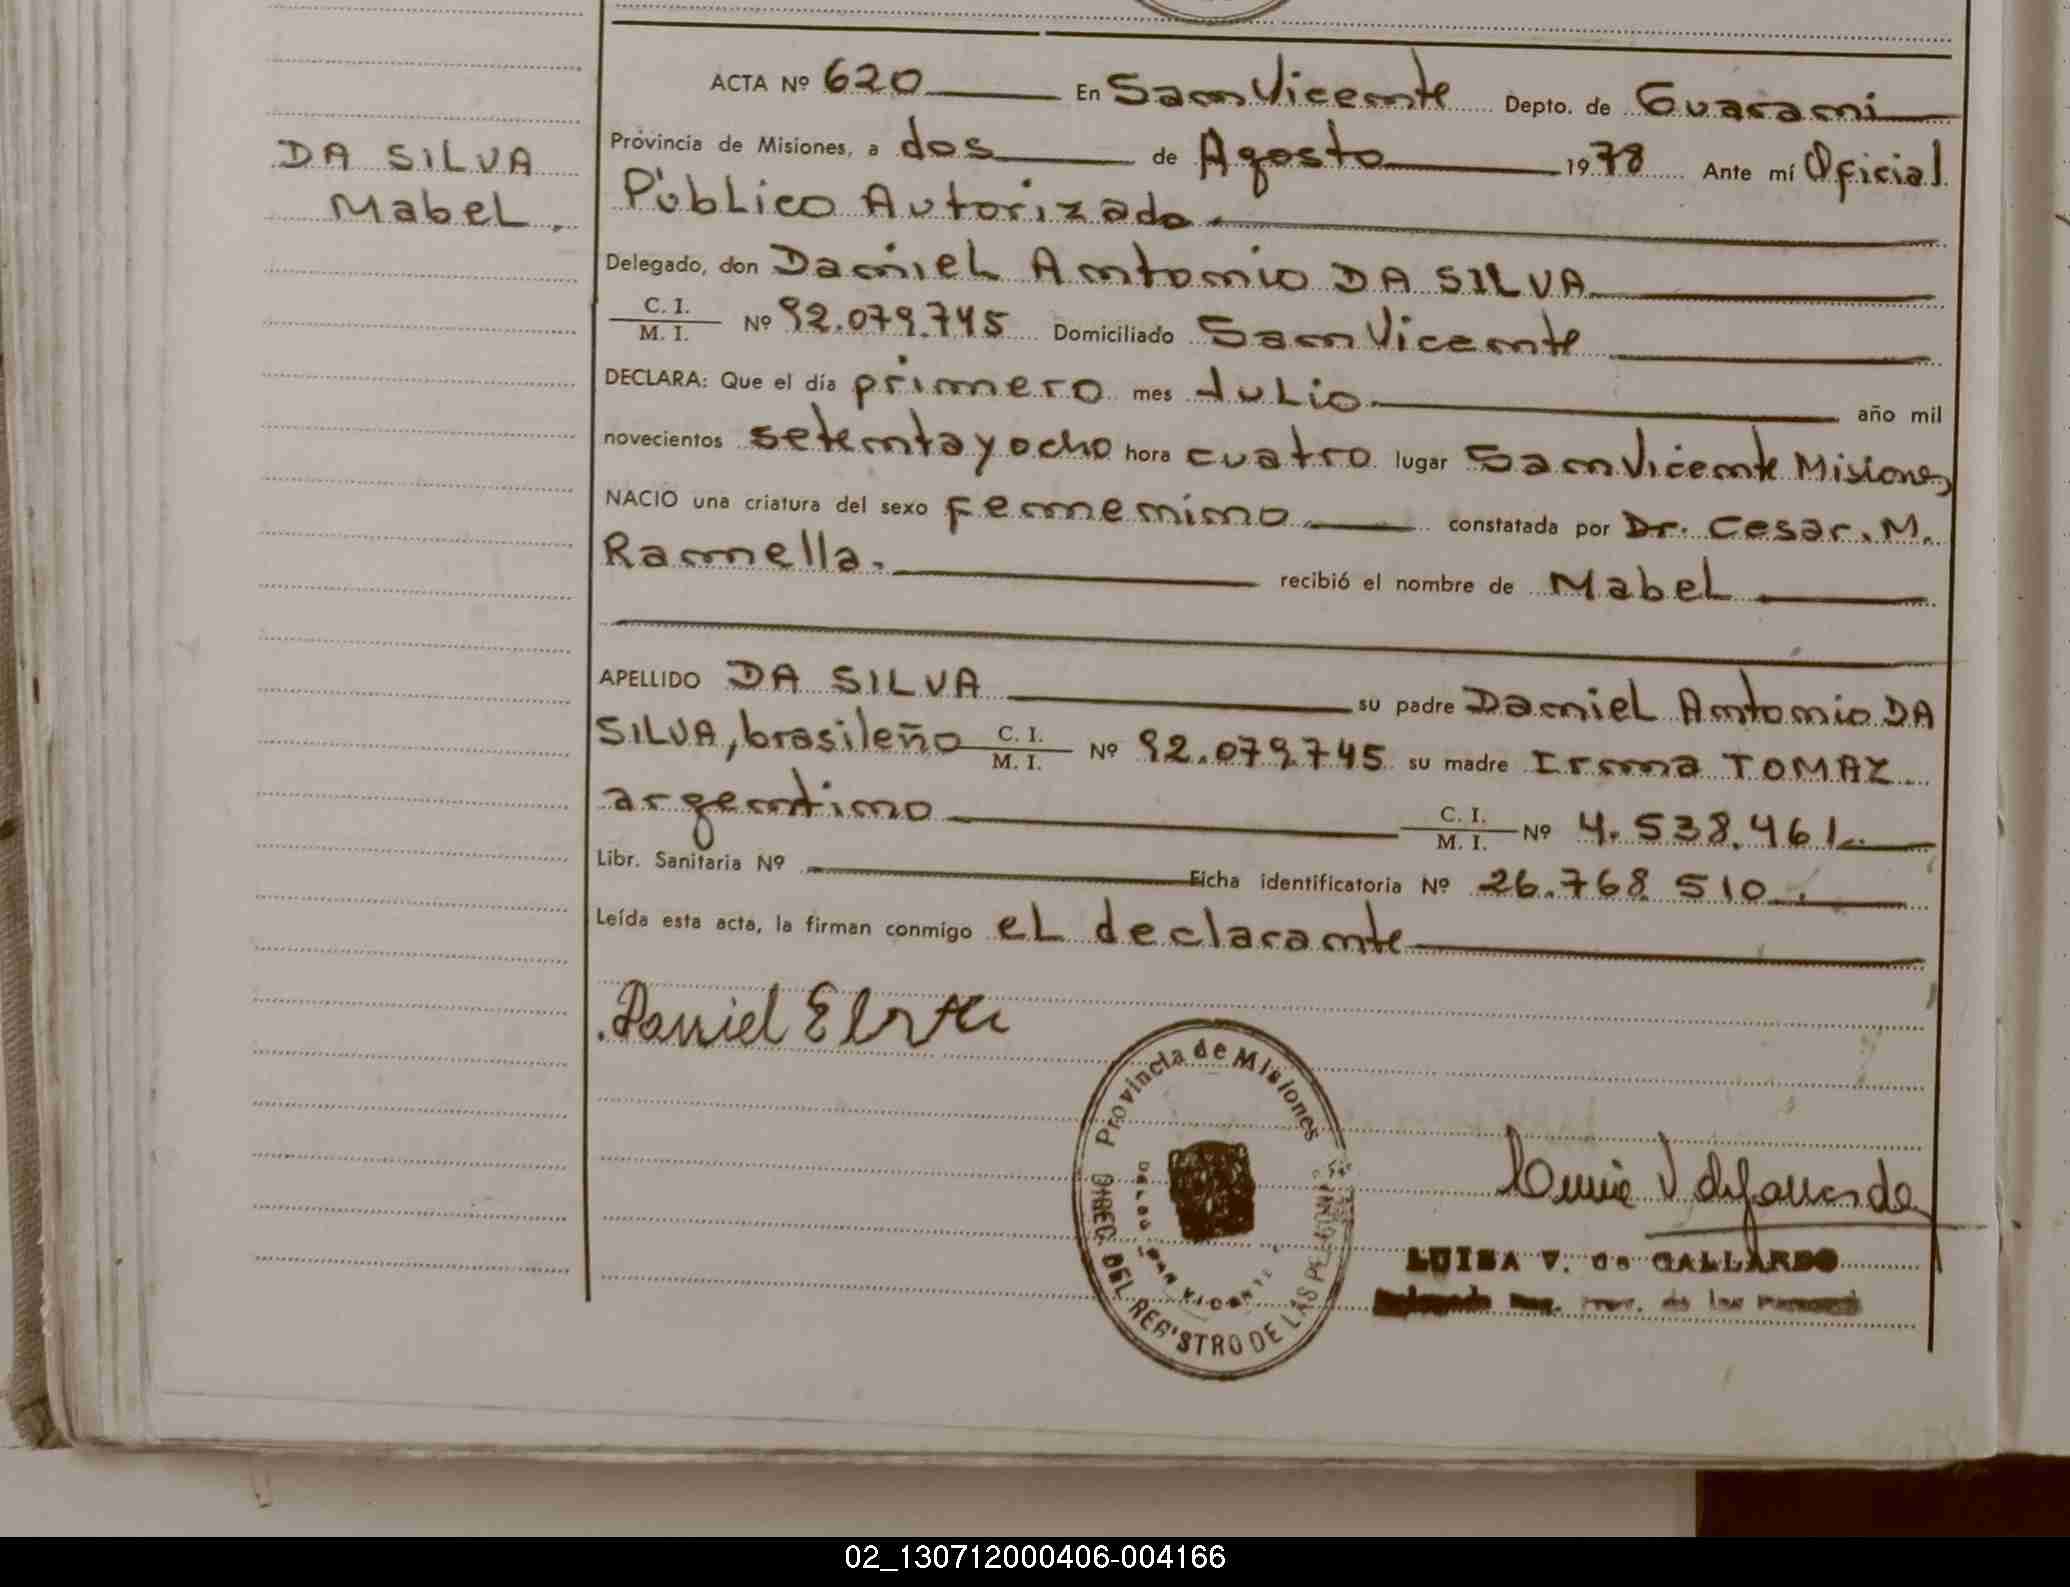 ACTA Nº 620 En San Vicente Depto. de Guarani
DA SILVA
Mabel.
Provincia de Misiones, a dos de Agosto 1978 Ante mí Oficial
Público Autorizado.
Delegado, don Daniel Antonio DA SILVA
C. I.
M. I. Nº 92.079.745 Domiciliado San Vicente
DECLARA: Que el día primero mes Julio. año mil
novecientos setenta y ocho hora cuatro lugar San Vicente Misiones
NACIO una criatura del sexo femenino. constatada por Dr. Cesar. M.
Ramella. recibió el nombre de Mabel
APELLIDO DA SILVA su padre Daniel Antonio DA
SILVA, brasileño C. I. M. I. Nº 92.079.745 su madre Irma TOMAZ
argentino C. I. M. I. Nº 4.538.461
Libr. Sanitaria Nº Ficha identificatoria Nº 26.768 510.
Leída esta acta, la firman conmigo el declarante
Daniel
Provincia de Misiones
DIREC. DEL REGISTRO DE LAS PERSONAS
DELEG. SAN VICENTE
LUISA V. de GALLARDO
02_130712000406-004166